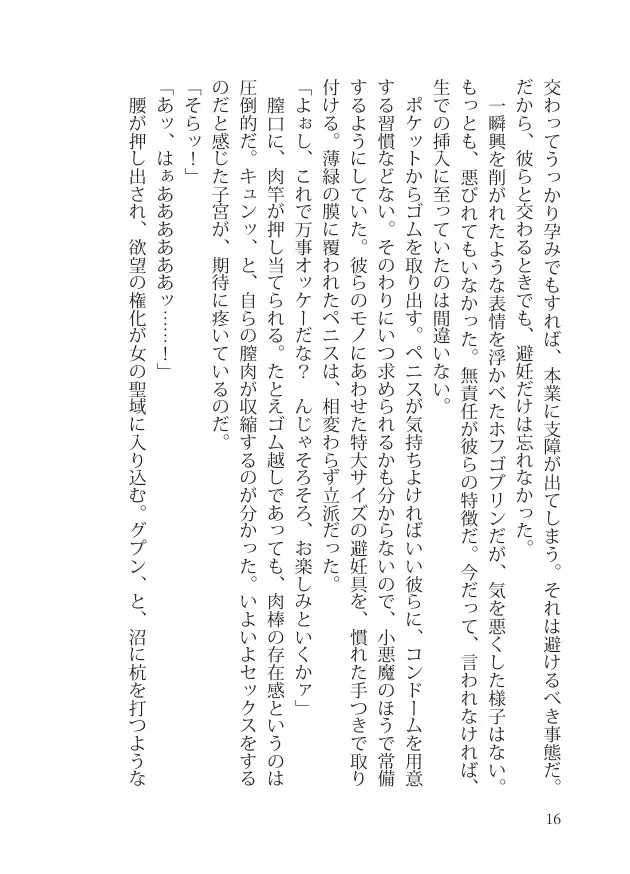 交わってうっかり孕みでもすれば、本業に支障が出てしまう。それは避けるべき事態だ。
だから、彼らと交わるときでも、避妊だけは忘れなかった。
　一瞬興を削がれたような表情を浮かべたホフゴブリンだが、気を悪くした様子はない。
もっとも、悪びれてもいなかった。無責任が彼らの特徴だ。今だって、言われなければ、
生での挿入に至っていたのは間違いない。
　ポケットからゴムを取り出す。ペニスが気持ちよければいい彼らに、コンドームを用意
する習慣などない。そのわりにいつ求められるかも分からないので、小悪魔のほうで常備
するようにしていた。彼らのモノにあわせた特大サイズの避妊具を、慣れた手つきで取り
付ける。薄緑の膜に覆われたペニスは、相変わらず立派だった。
「よぉし、これで万事オッケーだな？　んじゃそろそろ、お楽しみといくかァ」
　膣口に、肉竿が押し当てられる。たとえゴム越しであっても、肉棒の存在感というのは
圧倒的だ。キュンッ、と、自らの膣肉が収縮するのが分かった。いよいよセックスをする
のだと感じた子宮が、期待に疼いているのだ。
「そらッ！」
「あッ、はぁああああああッ……！」
　腰が押し出され、欲望の権化が女の聖域に入り込む。グプン、と、沼に杭を打つような
16